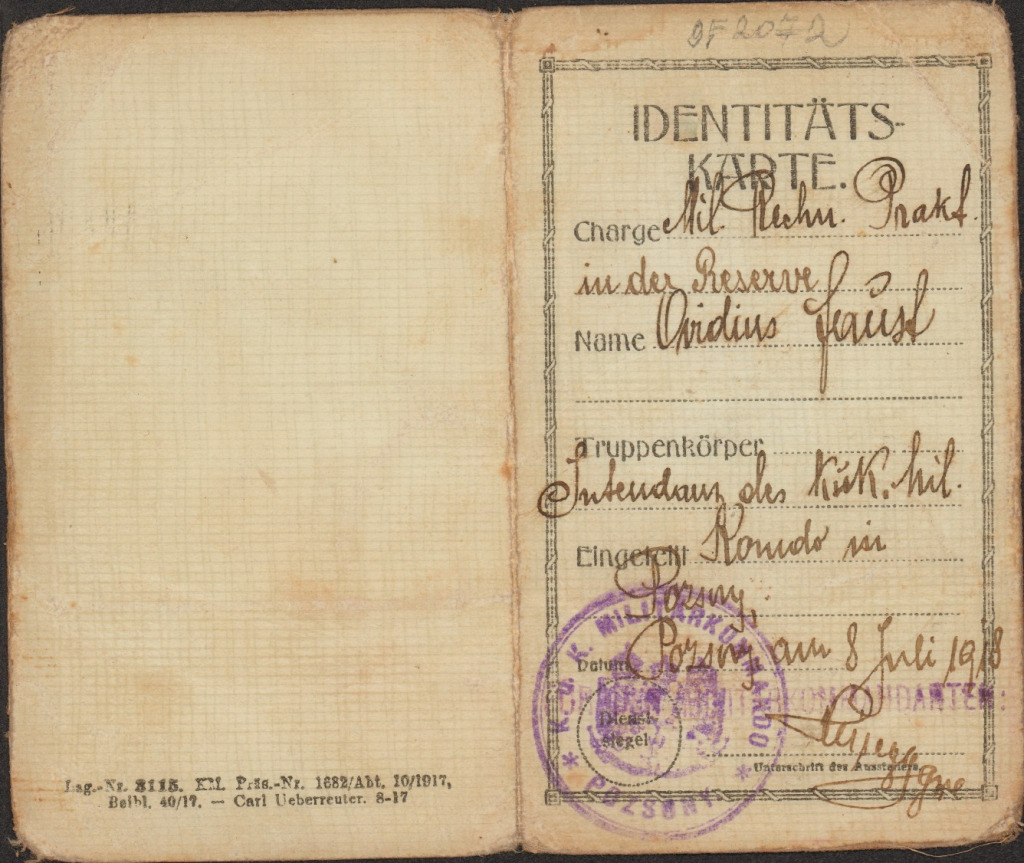 Lag.-Nr. 3115. KM. Präs.-Nr. 1682/Abt. 10/1917,
Beibl. 40/17. — Carl Ueberreuter. 8-17
9F 2072
IDENTITÄTS-
KARTE.
Charge Mil. Rechn. Prakt.
in der Reserve
Name Ovidius Faust
Truppenkörper
Intendanz des k.u.k. Mil.
Eingeteilt Komdo in
Pozsony.
Datum Pozsony am 8 Juli 1918
K. u. K. MILITÄRKOMMANDO
* POZSONY *
MILITÄRKOMMANDANTEN:
Dienst-
siegel
Unterschrift des Ausstellers